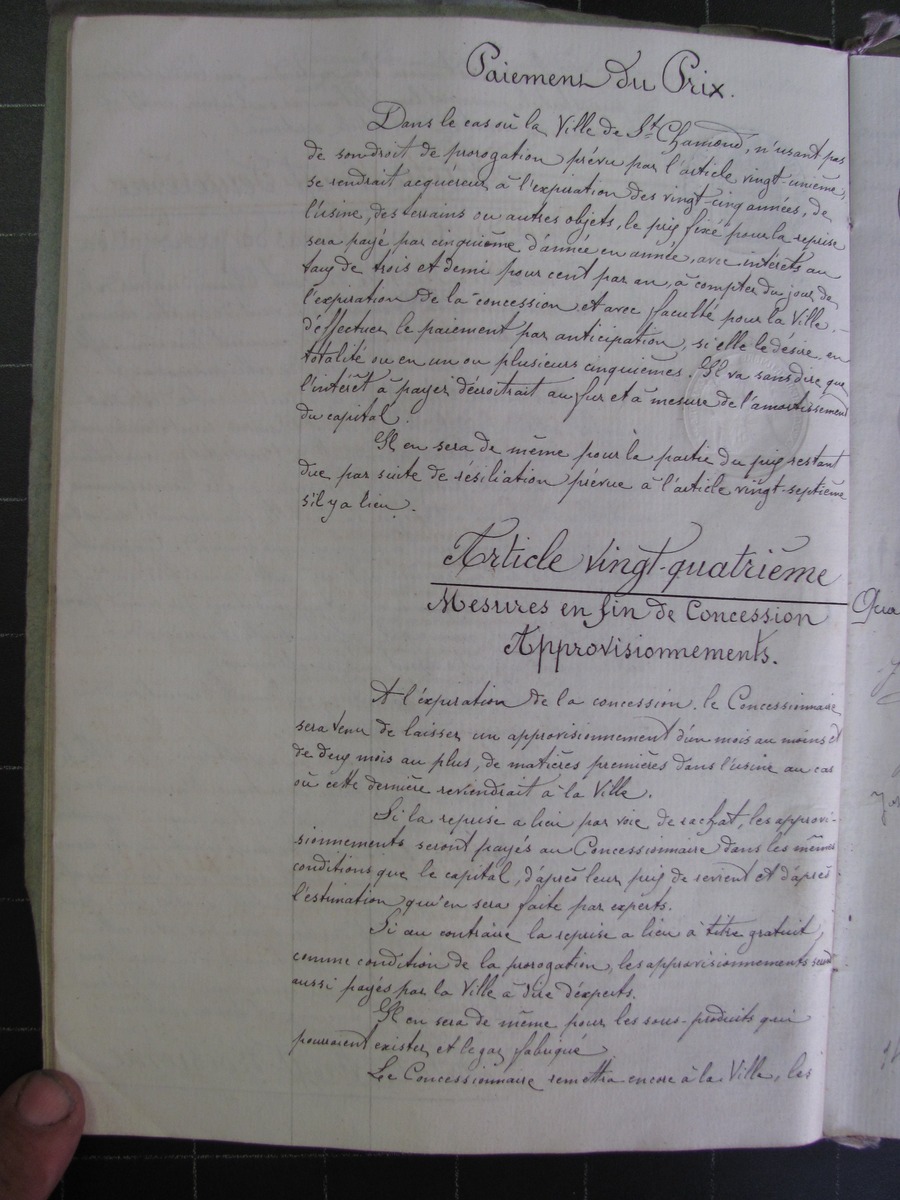 Paiement du Prix.
Dans le cas où la Ville de St Chamond, n'usant pas
de son droit de prorogation prévu par l'article vingt-unième,
se rendrait acquéreur à l'expiration des vingt-cinq années, de
l'usine, des terrains ou autres objets, le prix fixé pour la reprise
sera payé par cinquième d'année en année, avec intérêts au
taux de trois et demi pour cent par an, à compter du jour de
l'expiration de la concession et avec faculté pour la Ville,
d'effectuer le paiement par anticipation, si elle le désire, en
totalité ou en un ou plusieurs cinquièmes. Il va sans dire que
l'intérêt à payer décroitrait au fur et à mesure de l'amortissement
du capital.
Il en sera de même pour la partie du prix restant
due par suite de résiliation prévue à l'article vingt-septième
s'il y a lieu.
Article vingt-quatrième
Mesures en fin de Concession
Approvisionnements.
A l'expiration de la concession, le Concessionnaire
sera tenu de laisser un approvisionnement d'un mois au moins et
de deux mois au plus, de matières premières dans l'usine au cas
où cette dernière reviendrait à la Ville.
Si la reprise a lieu par voie de rachat, les approvi-
sionnements seront payés au Concessionnaire dans les mêmes
conditions que le capital, d'après leur prix de revient et d'après
l'estimation qu'en sera faite par experts.
Si au contraire la reprise a lieu à titre gratuit,
comme condition de la prorogation, les approvisionnements seront
aussi payés par la Ville à dire d'experts.
Il en sera de même pour les sous-produits qui
pourraient exister et le gaz fabriqué
Le Concessionnaire remettra encore à la Ville, les